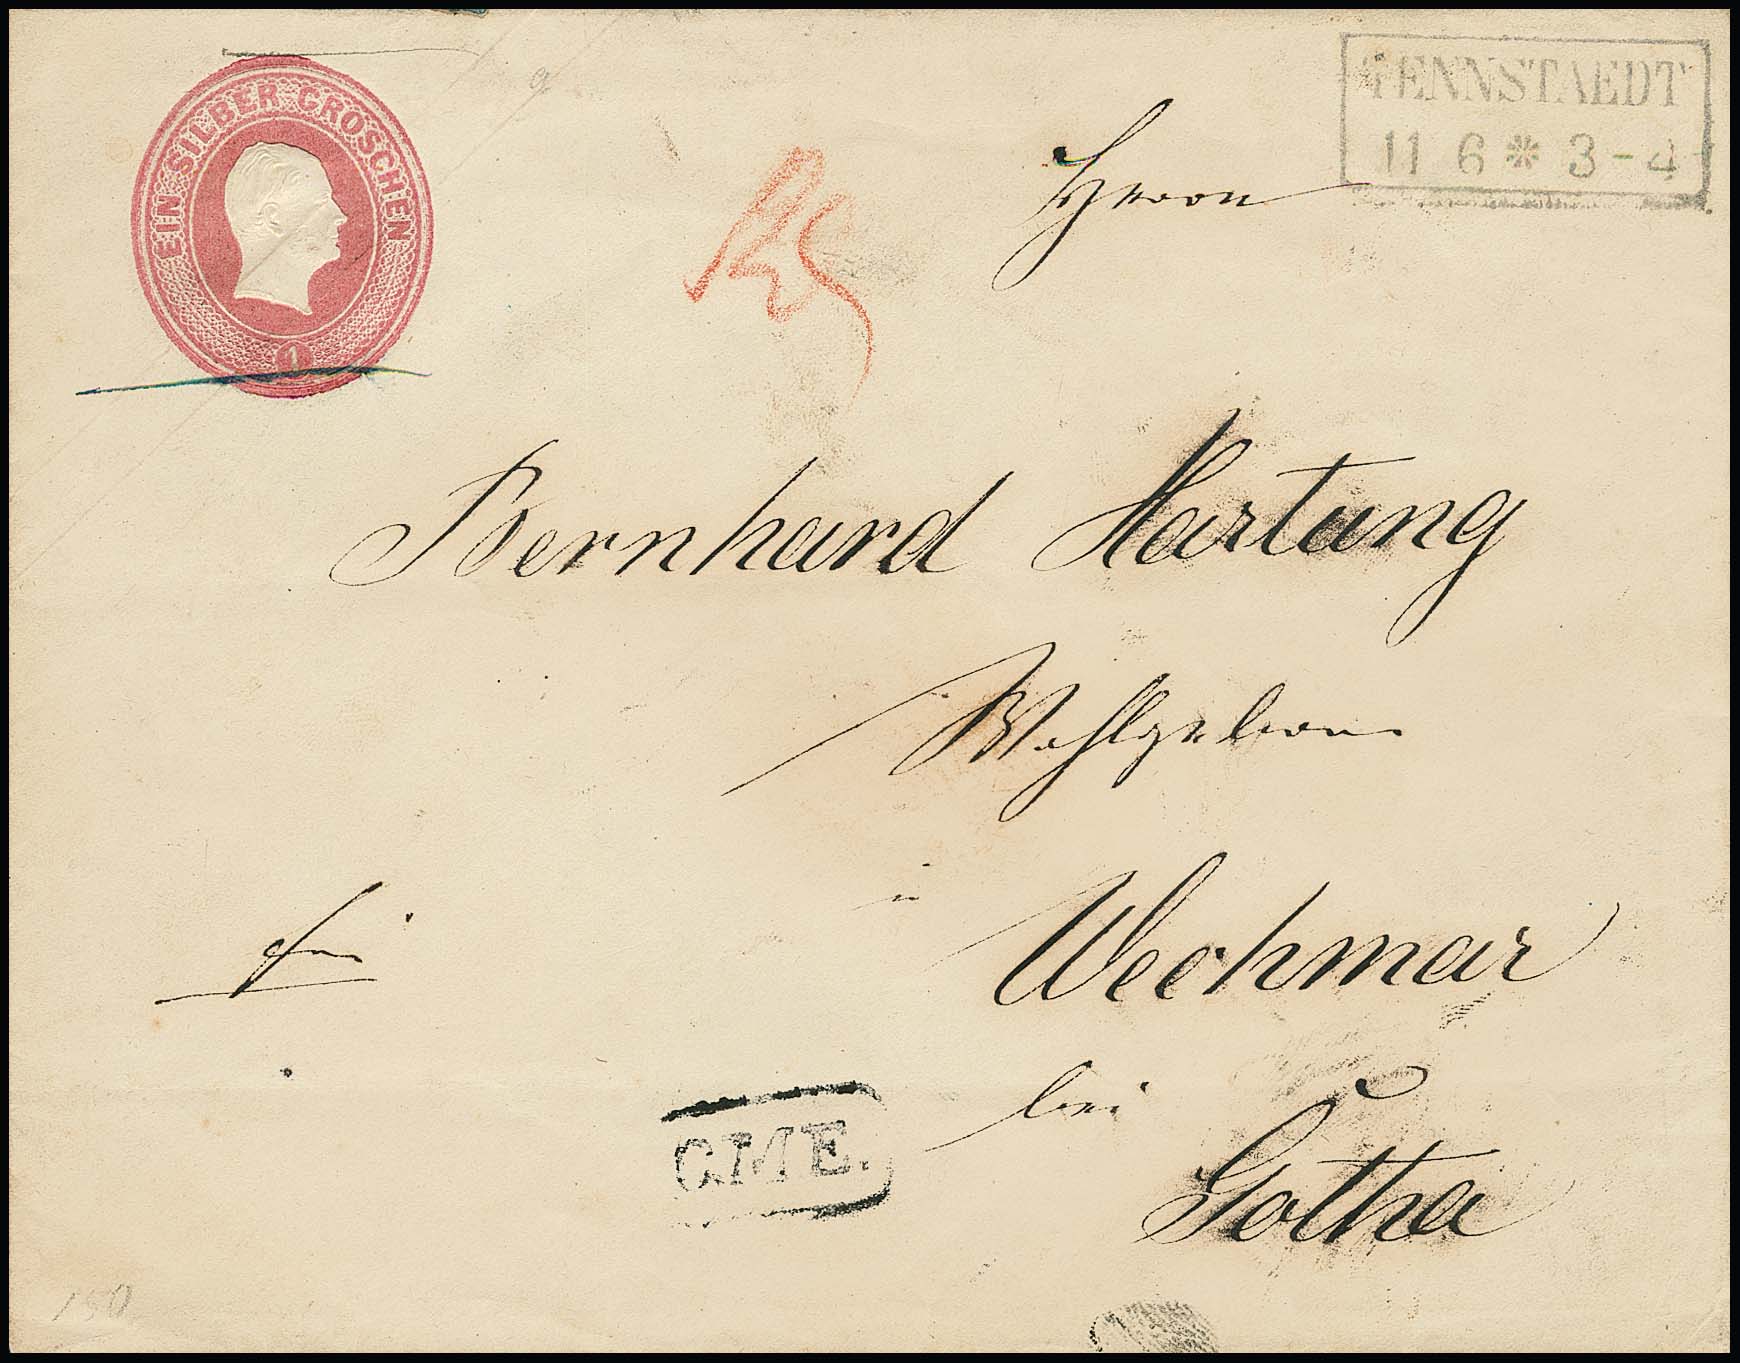 EIN SILBER GROSCHEN
1
TENNSTAEDT
11 6 * 3-4
Herrn
Bernhard Hartung
Wohlgeboren
in
Wechmar
bei
Gotha
frei
G.M.E.
150